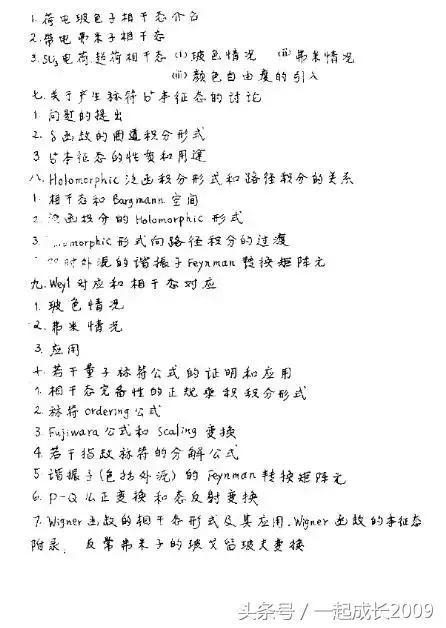 1. 荷电玻色子相干态介绍
2. 带电弗米子相干态
3. SU₃电荷,超荷相干态 (i) 玻色情况 (ii) 弗米情况
(iii) 颜色自由度的引入
七. 关于产生祘符 b⁺本征态的讨论
1. 问题的提出
2. δ函数的围道积分形式
3 b⁺本征态的性质和用途
八. Holomorphic 泛函积分形式和路径积分的关系
1. 相干态和Bargmann 空间
2. 泛函积分的Holomorphic 形式
3. omorphic 形式向路径积分的过渡
外源的谐振子Feynman 转换矩阵元
九. Weyl 对应和相干态对应
1. 玻色情况
2. 弗米情况
3. 应用
十. 若干量子祘符公式的证明和应用
1. 相干态完备性的正规乘积积分形式
2. 祘符 ordering 公式
3. Fujiwara 公式和 Scaling 变换
4. 若干指数祘符的分解公式
5 谐振子(包括外源)的 Feynman 转换矩阵元
6. P-Q 么正变换和态反射变换
7. Wigner 函数的相干态形式及其应用. Wigner 函数的本征态
附录. 反常弗米子的玻戈留玻夫变换
头条号 / 一起成长2009